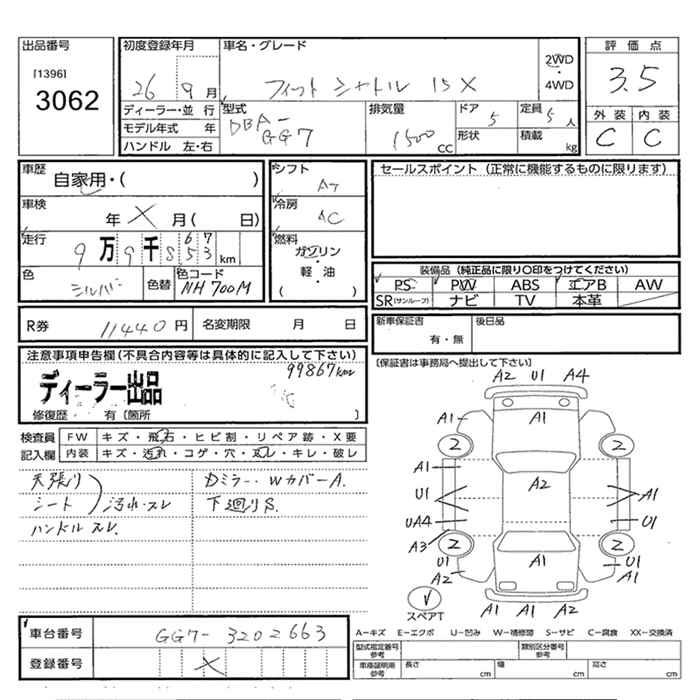 出品番号
[1396]
3062
初度登録年月
26 9月
車名・グレード
フィット シャトル 15X
2WD
・
4WD
評価点
3.5
外装 内装
C C
ディーラー・並行
モデル年式 年
ハンドル 左・右
型式
DBA-
GG7
排気量
1500
CC
ドア
5
形状
定員
5人
積載
kg
車歴
自家用・( )
車検
年 X 月( 日)
走行
9万9千853km
67
色
シルバー
色替
色コード
NH700M
シフト
AT
冷房
AC
燃料
ガソリン
・
軽・油
( )
セールスポイント(正常に機能するものに限ります)
装備品(純正品に限り○印をつけてください)
PS PW ABS エアB AW
SR(サンルーフ) ナビ TV 本革
R券 11440円 名変期限 月 日
新車保証書
有・無
後日品
注意事項申告欄(不具合内容等は具体的に記入して下さい)
99867km
ディーラー出品
修復歴・ 有〔箇所 〕
〔保証書は事務局へ提出して下さい〕
検査員
記入欄
FW キズ・飛石・ヒビ割・リペア跡・X要
内装 キズ・汚れ・コゲ・穴・スレ・キレ・破レ
天張り
シート
汚れ・スレ
ハンドル スレ.
Dミラー. WカバーA.
下廻りS.
A2 U1 A4
A1 A1
2 2
A1
A2
U1 A1
UA4 U1
A3
2 2
A1
U1 U1
A2 A1
スペアT
A1 A1 A2
車台番号 GG7-3202663
登録番号 X
A-キズ E-エクボ U-凹み W-補修跡 S-サビ C-腐食 XX-交換済
型式指定番号
参考
類別区分番号
参考
車庫証明用
参考
長さ cm 幅 cm 高さ cm